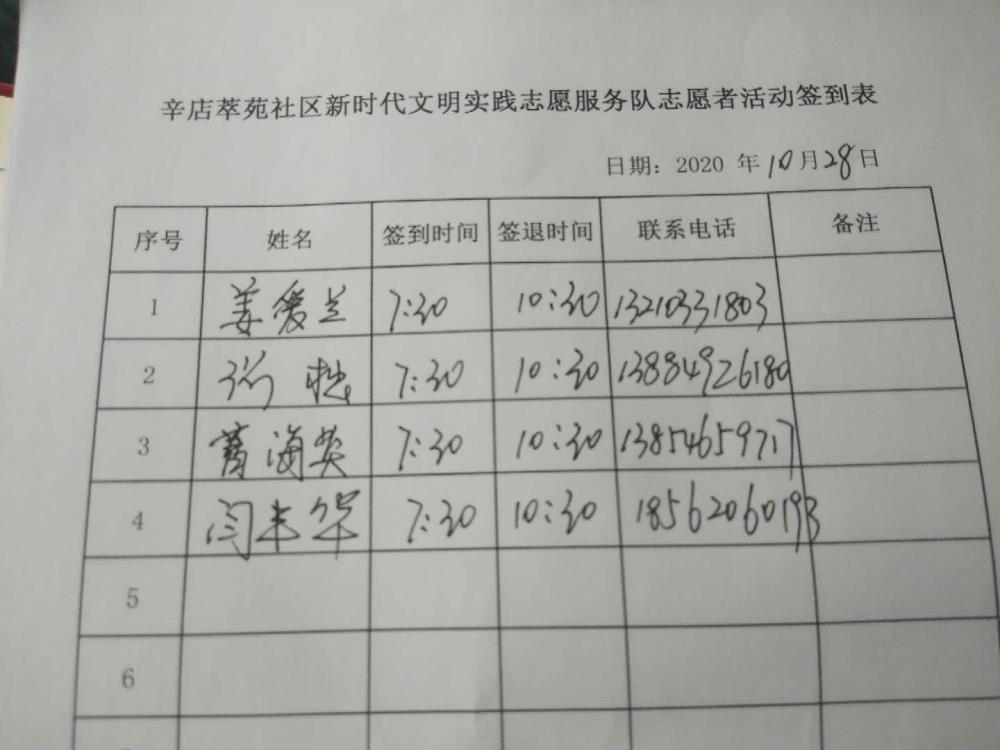 辛店萃苑社区新时代文明实践志愿服务队志愿者活动签到表
日期：2020 年10月28日
序号 姓名 签到时间 签退时间 联系电话 备注
1 姜爱兰 7:30 10:30 13210331803
2 7:30 10:30 13884926180
3 海英 7:30 10:30 13854659717
4 闫丰华 7:30 10:30 18562060193
5
6